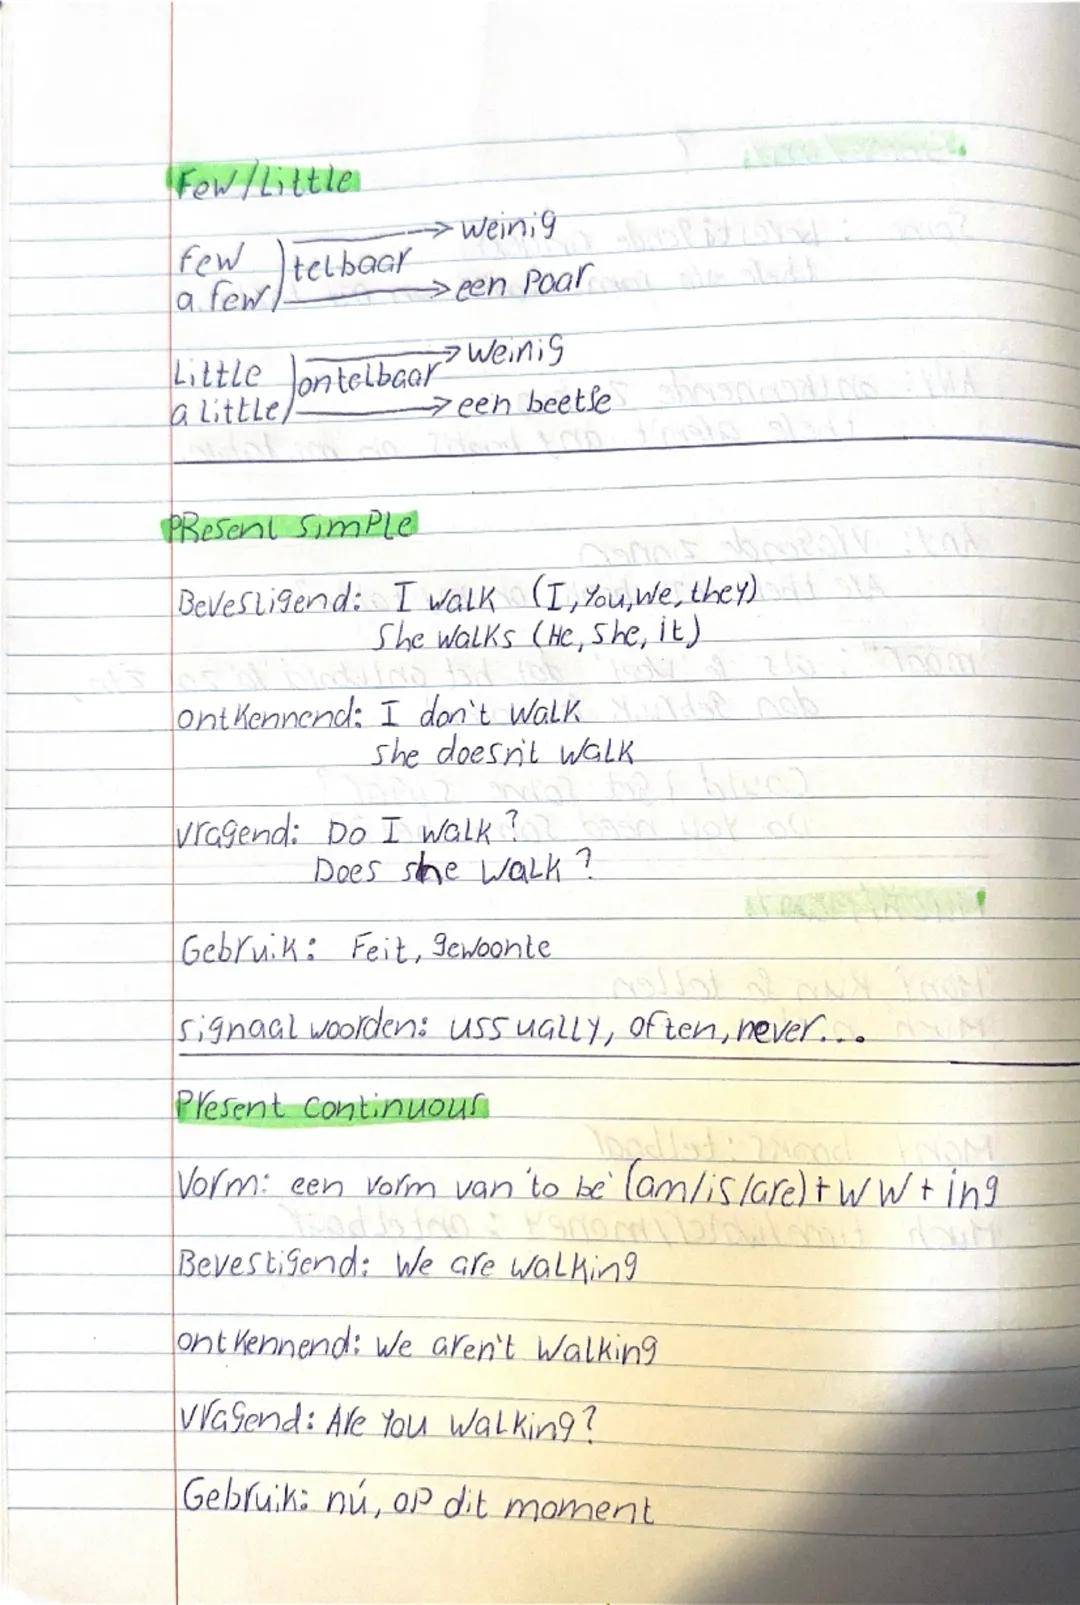 Few/Little
few telbaar → weinig
a few → een paar
Little ontelbaar → weinig
a little → een beetje
PResent simPle
Bevestigend: I walk (I, You, We, they)
She walks (He, She, it)
ontkennend: I don't walk
she doesn't walk
vragend: Do I walk?
Does she walk?
Gebruik: Feit, gewoonte
signaal woorden: ussually, often, never...
Present continuous
Vorm: een vorm van 'to be' (am/is/are) + ww + ing
Bevestigend: We are walking
ontkennend: We aren't walking
vragend: Are You walking?
Gebruik: nú, op dit moment